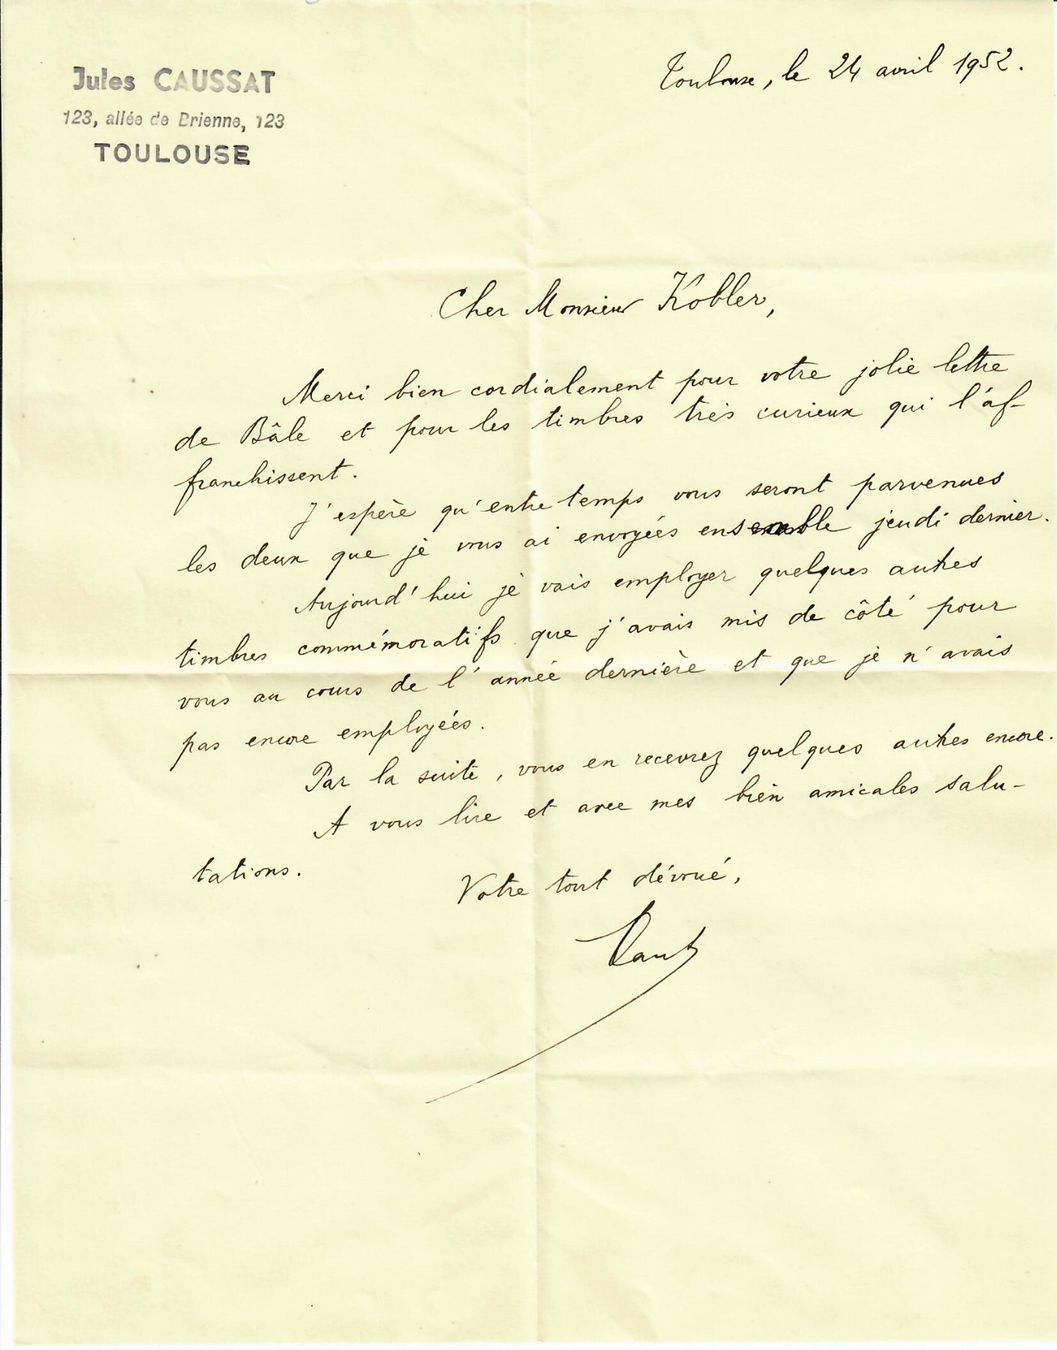 Jules CAUSSAT
123, allée de Brienne, 123
TOULOUSE
Toulouse, le 24 avril 1952.
Cher Monsieur Kobler,
Merci bien cordialement pour votre jolie lettre
de Bâle et pour les timbres très curieux qui l'af-
franchissent.
J'espère qu'entre temps vous seront parvenues
les deux que je vous ai envoyées ensemble jeudi dernier.
Aujourd'hui je vais employer quelques autres
timbres commémoratifs que j'avais mis de côté pour
vous au cours de l'année dernière et que je n'avais
pas encore employés.
Par la suite, vous en recevrez quelques autres encore.
A vous lire et avec mes bien amicales salu-
tations.
Votre tout dévoué,